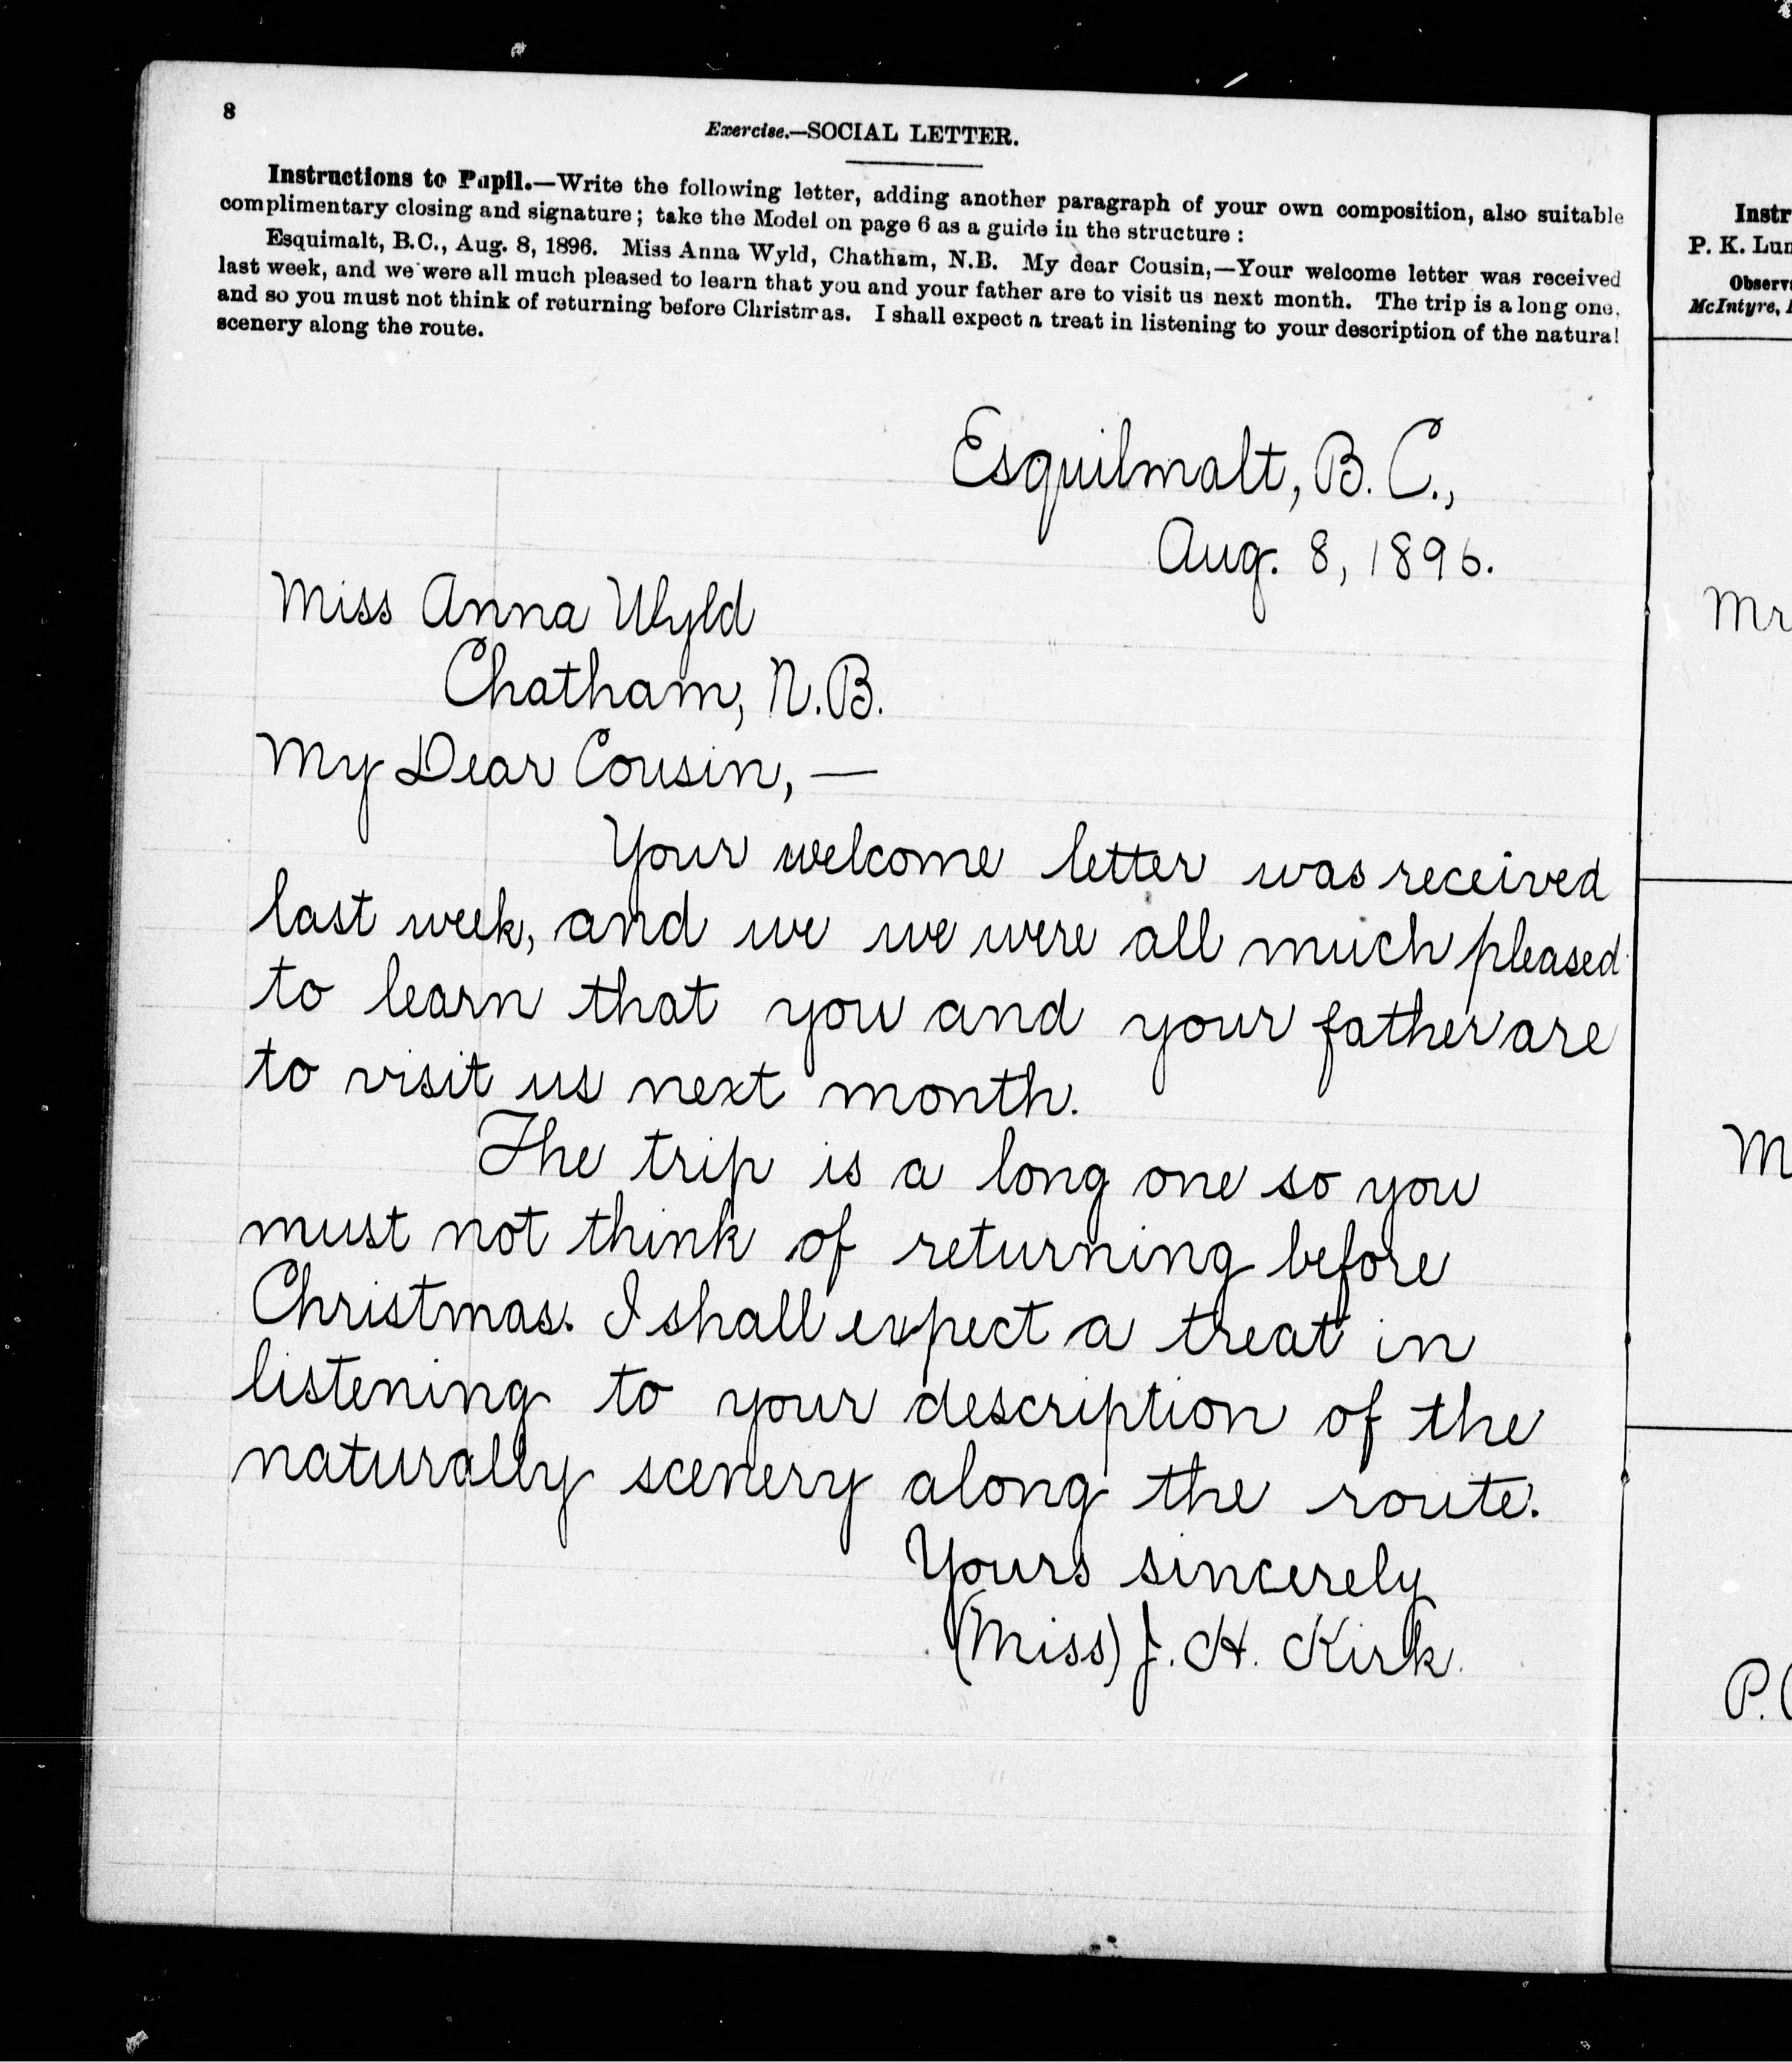 8
Exercise.—SOCIAL LETTER.
Instructions to Pupil.—Write the following letter, adding another paragraph of your own composition, also suitable
complimentary closing and signature; take the Model on page 6 as a guide in the structure:
Esquimalt, B.C., Aug. 8, 1896. Miss Anna Wyld, Chatham, N.B. My dear Cousin,—Your welcome letter was received
last week, and we were all much pleased to learn that you and your father are to visit us next month. The trip is a long one,
and so you must not think of returning before Christmas. I shall expect a treat in listening to your description of the natural
scenery along the route.
Esquilmalt, B. C.,
Aug. 8, 1896.
Miss Anna Wyld
Chatham, N.B.
My Dear Cousin, —
Your welcome letter was received
last week, and we we were all much pleased
to learn that you and your father are
to visit us next month.
The trip is a long one so you
must not think of returning before
Christmas. I shall expect a treat in
listening to your description of the
naturally scenery along the route.
Yours sincerely
(Miss) J. H. Kirk.
Instr
P. K. Lun
Observ
McIntyre,
Mr
M
P.